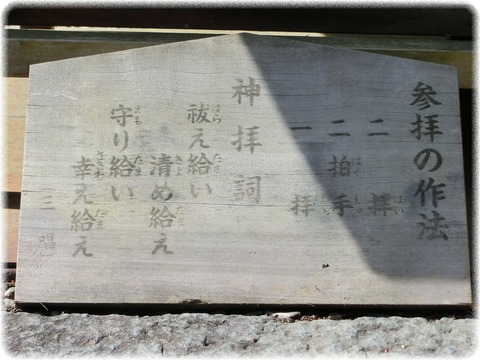 参拝の作法
二拝
二拍手
一拝
神拝詞
祓え給い
清め給え
守り給い
幸え給え
三唱